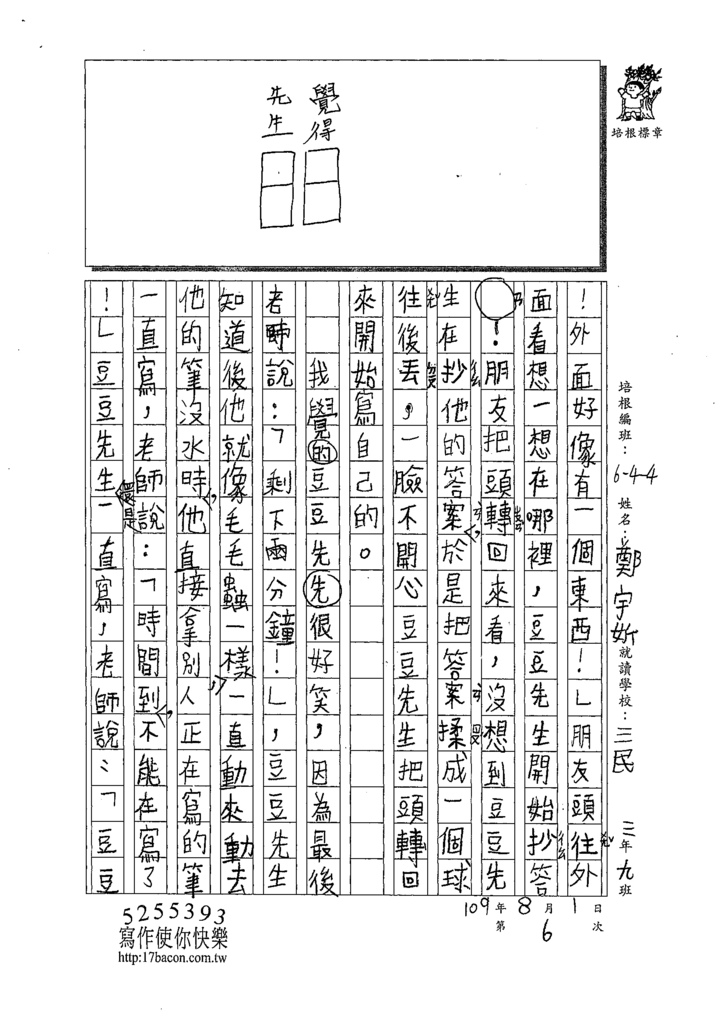 覺得
先生
培根標章
培根編班：6-4-4 姓名：鄭宇妡 就讀學校：三民 三年九班
！外面好像有一個東西！」朋友頭往外
面看想一想在哪裡，豆豆先生開始抄答
！朋友把頭轉回來看，沒想到豆豆先
生在抄他的答案，於是把答案揉成一個球
往後丟，一臉不開心豆豆先生把頭轉回
來開始寫自己的。
我覺的豆豆先先很好笑，因為最後
老師說：「剩下兩分鐘！」，豆豆先生
知道後他就像毛毛蟲一樣，一直動來動去
他的筆沒水時，他直接拿別人正在寫的筆
一直寫，老師說：「時間到，不能在寫了
！」豆豆先生還是一直寫，老師說：「豆豆
109年8月1日
第6次
5255393
寫作使你快樂
http:17bacon.com.tw